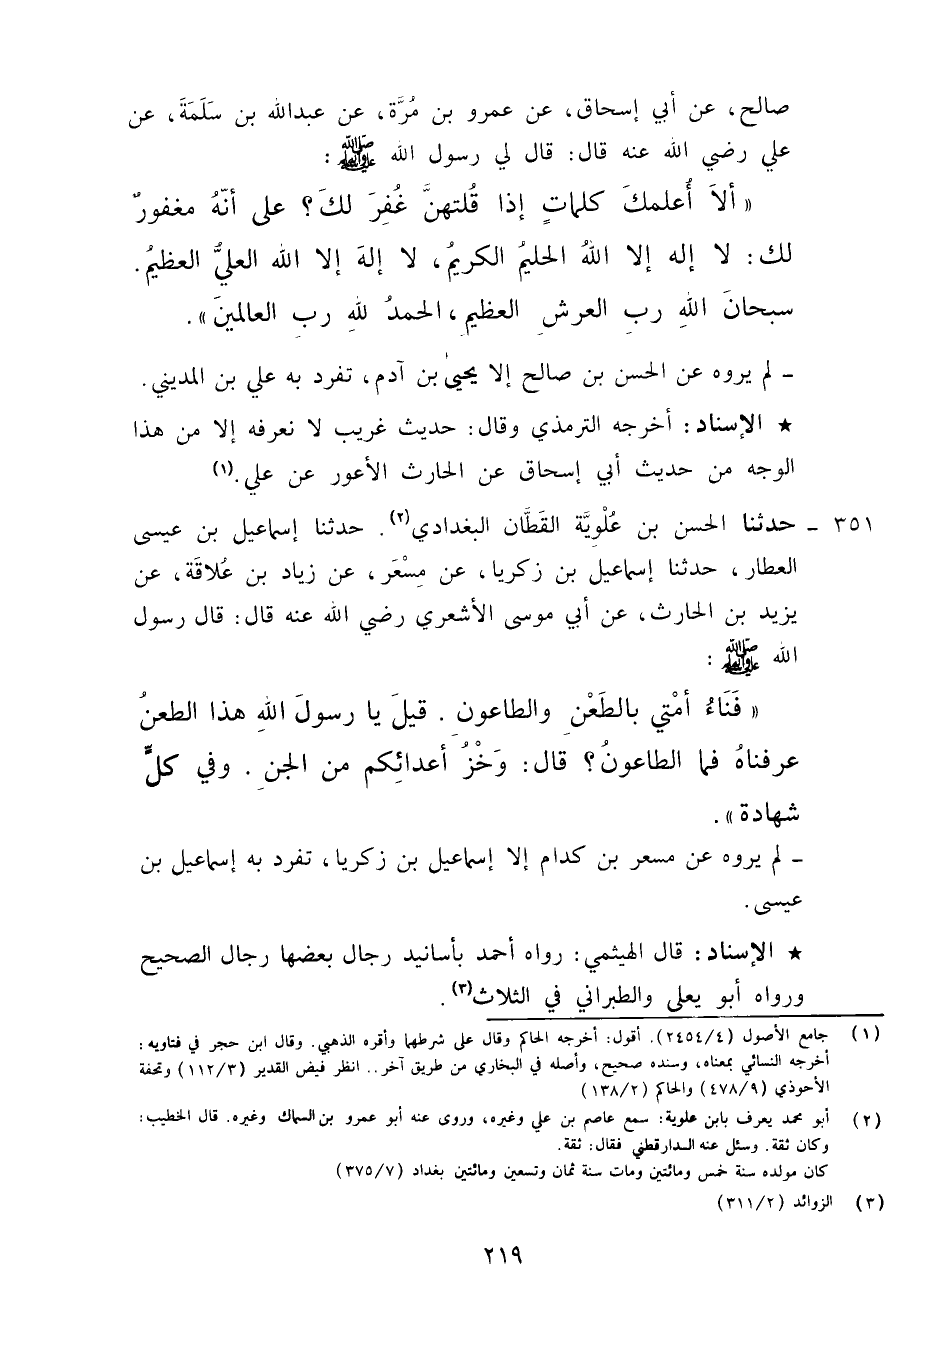 صالح، عن أبي إسحاق، عن عمرو بن مُرَّة، عن عبدالله بن سَلَمَةَ، عن
علي رضي الله عنه قال: قال لي رسول الله ﷺ :
« ألاَ أُعلمكَ كلماتٍ إذا قُلتهنَّ غُفِرَ لكَ؟ على أنّهُ مغفورٌ
لك: لا إله إلا اللهُ الحليمُ الكريمُ، لا إلهَ إلا الله العليُّ العظيمُ.
سبحانَ اللهِ ربِ العرشِ العظيمِ، الحمدُ للهِ ربِ العالمينَ».
ـ لم يروه عن الحسن بن صالح إلا يحيىٰ بن آدم، تفرد به علي بن المديني.
★ الإسناد: أخرجه الترمذي وقال: حديث غريب لا نعرفه إلا من هذا
الوجه من حديث أبي إسحاق عن الحارث الأعور عن علي.(١)
٣٥١ ـ حدثنا الحسن بن عُلْوِيَّة القَطَّان البغدادي(٢). حدثنا إسماعيل بن عيسى
العطار، حدثنا إسماعيل بن زكريا، عن مِسْعَر، عن زياد بن عُلاقَة، عن
يزيد بن الحارث، عن أبي موسى الأشعري رضي الله عنه قال: قال رسول
الله ﷺ :
« فَنَاءُ أمْتي بالطَعْنِ والطاعونِ. قيلَ يا رسولَ اللهِ هذا الطعنُ
عرفناهُ فما الطاعونُ؟ قال: وَخْزُ أعدائِكم من الجنِ. وفي كلٍّ
شهادة».
ـ لم يروه عن مسعر بن كدام إلا إسماعيل بن زكريا، تفرد به إسماعيل بن
عيسى.
★ الإسناد: قال الهيثمي: رواه أحمد بأسانيد رجال بعضها رجال الصحيح
ورواه أبو يعلى والطبراني في الثلاث(٣).
(١) جامع الأصول (٢٤٥٤/٤). أقول: أخرجه الحاكم وقال على شرطهما وأقره الذهبي. وقال ابن حجر في فتاويه:
أخرجه النسائي بمعناه، وسنده صحيح، وأصله في البخاري من طريق آخر.. انظر فيض القدير (١١٢/٣) وتحفة
الأحوذي (٤٧٨/٩) والحاكم (١٣٨/٢)
(٢) أبو محمد يعرف بابن علوية: سمع عاصم بن علي وغيره، وروى عنه أبو عمرو بن السماك وغيره. قال الخطيب:
وكان ثقة. وسئل عنه الدارقطني فقال: ثقة.
كان مولده سنة خمس ومائتين ومات سنة ثمان وتسعين ومائتين بغداد (٣٧٥/٧)
(٣) الزوائد (٣١١/٢)
٢١٩